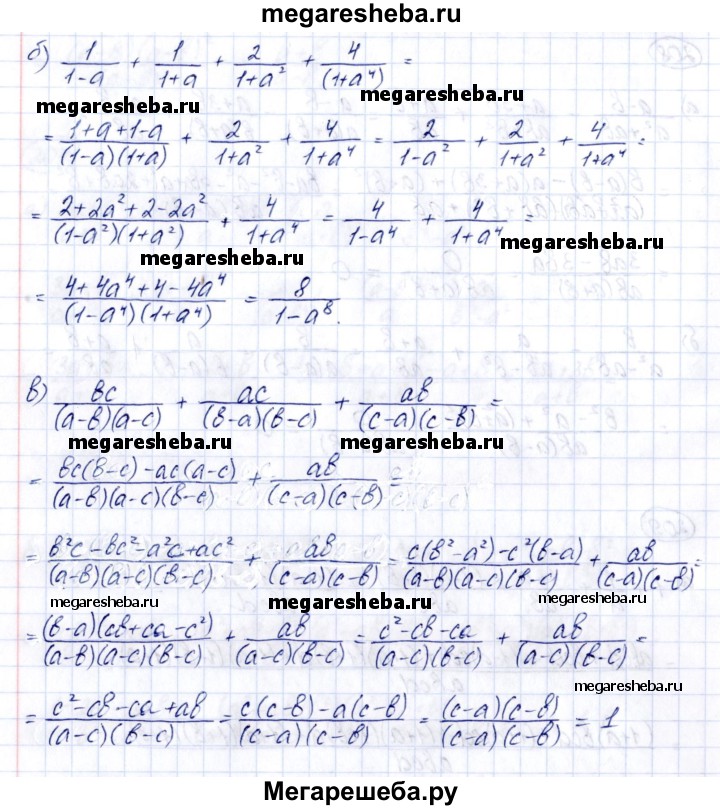 megaresheba.ru
б) 1/(1-a) + 1/(1+a) + 2/(1+a²) + 4/(1+a⁴) =
megaresheba.ru megaresheba.ru
= (1+a+1-a)/((1-a)(1+a)) + 2/(1+a²) + 4/(1+a⁴) = 2/(1-a²) + 2/(1+a²) + 4/(1+a⁴) =
= (2+2a²+2-2a²)/((1-a²)(1+a²)) + 4/(1+a⁴) = 4/(1-a⁴) + 4/(1+a⁴) =
megaresheba.ru megaresheba.ru
= (4+4a⁴+4-4a⁴)/((1-a⁴)(1+a⁴)) = 8/(1-a⁸).
в) вc/((a-в)(a-c)) + ac/((в-a)(в-c)) + aв/((c-a)(c-в)) =
megaresheba.ru megaresheba.ru
= (вc(в-c)-ac(a-c))/((a-в)(a-c)(в-c)) + aв/((c-a)(c-в)) =
= (в²c-вc²-a²c+ac²)/((a-в)(a-c)(в-c)) + aв/((c-a)(c-в)) = (c(в²-a²)-c²(в-a))/((a-в)(a-c)(в-c)) + aв/((c-a)(c-в)) =
megaresheba.ru megaresheba.ru megaresheba.ru
= ((в-a)(cв+ca-c²))/((a-в)(a-c)(в-c)) + aв/((c-a)(c-в)) = (c²-cв-ca)/((a-c)(в-c)) + aв/((a-c)(в-c)) =
megaresheba.ru
= (c²-cв-ca+aв)/((a-c)(в-c)) = (c(c-в)-a(c-в))/((c-a)(c-в)) = ((c-a)(c-в))/((c-a)(c-в)) = 1
Мегарешеба.ру